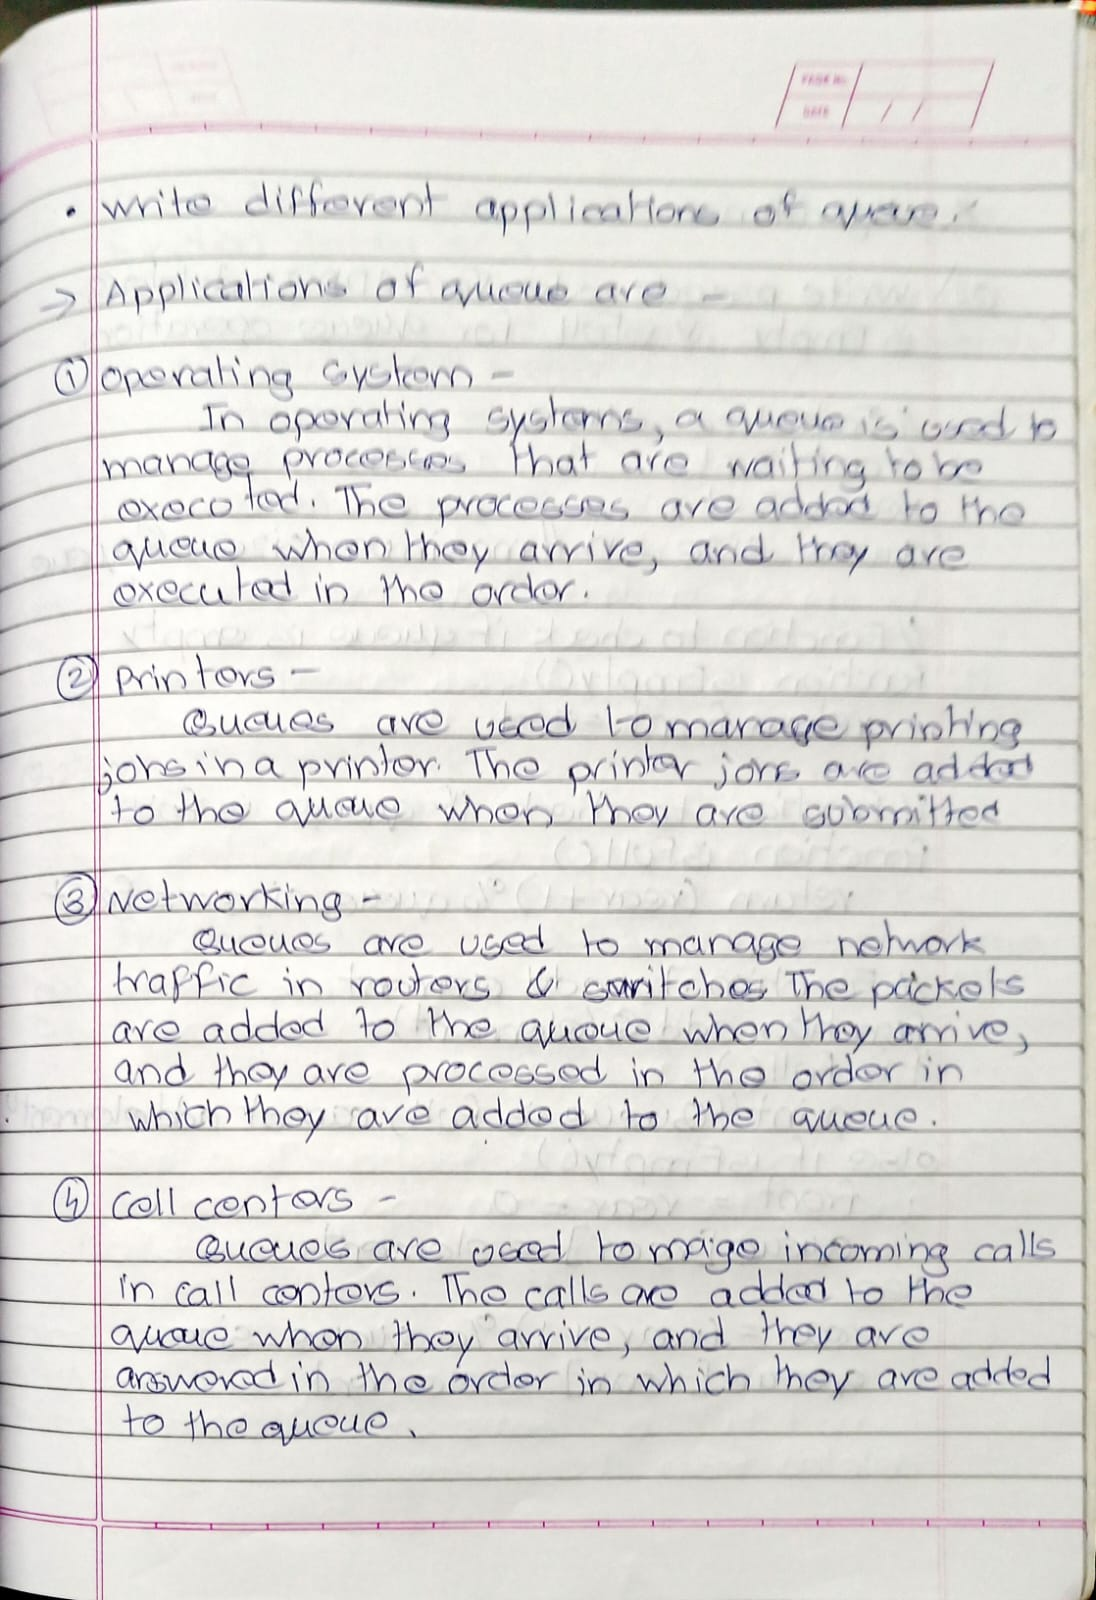 PAGE No.
DATE / /
• Write different applications of queue.
→ Applications of queue are -
① Operating system -
In operating systems, a queue is used to
manage processes that are waiting to be
executed. The processes are added to the
queue when they arrive, and they are
executed in the order.
② Printers -
Queues are used to manage printing
jobs in a printer. The printer jobs are added
to the queue when they are submitted
③ Networking -
Queues are used to manage network
traffic in routers & switches The packets
are added to the queue when they arrive,
and they are processed in the order in
which they are added to the queue.
④ Call centers -
Queues are used to mage incoming calls
in call centers. The calls are added to the
queue when they arrive, and they are
answered in the order in which they are added
to the queue.